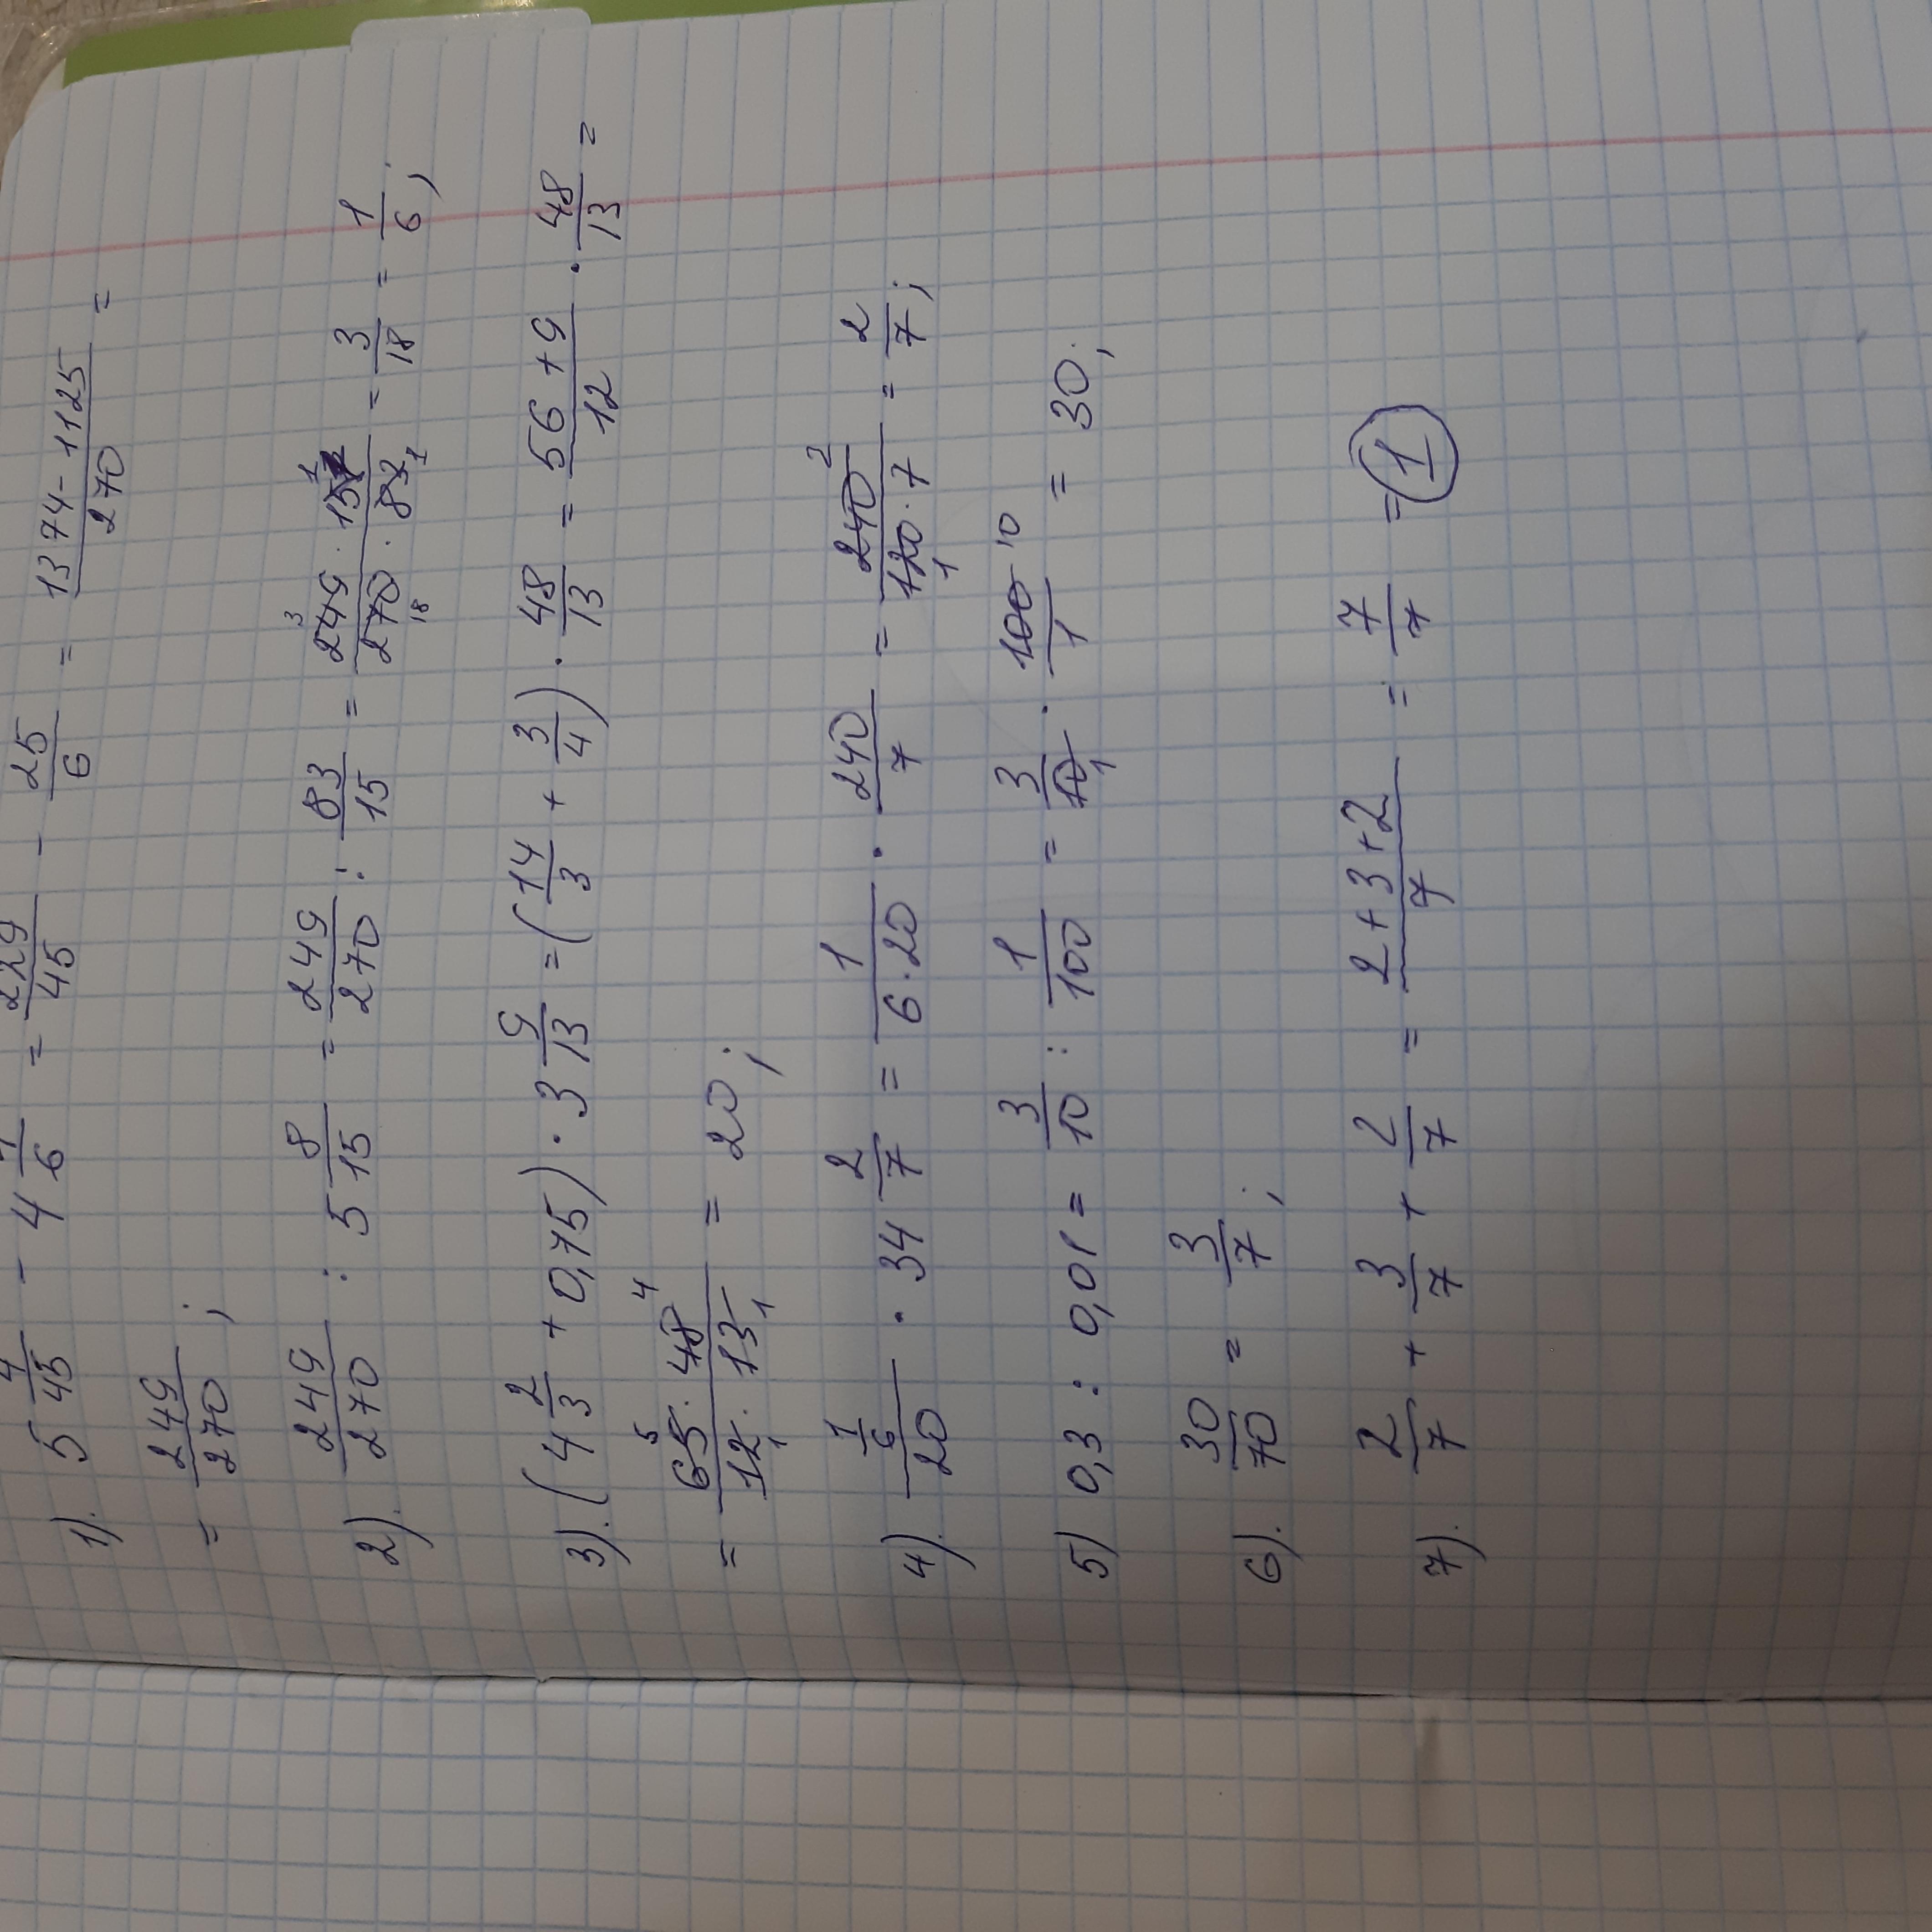 1). 5 4/45 - 4 1/6 = 229/45 - 25/6 = (1374 - 1125)/270 =
= 249/270;
2). 249/270 : 5 8/15 = 249/270 : 83/15 = (249 · 15)/(270 · 83) = 3/18 = 1/6;
3). (4 2/3 + 0,75) · 3 9/13 = (14/3 + 3/4) · 48/13 = (56 + 9)/12 · 48/13 =
= (65 · 48)/(12 · 13) = 20;
4). (1/6)/20 · 34 2/7 = 1/(6 · 20) · 240/7 = 240/(120 · 7) = 2/7;
5) 0,3 : 0,01 = 3/10 : 1/100 = 3/10 · 100/1 = 30;
6). 30/70 = 3/7;
7). 2/7 + 3/7 + 2/7 = (2+3+2)/7 = 7/7 = 1